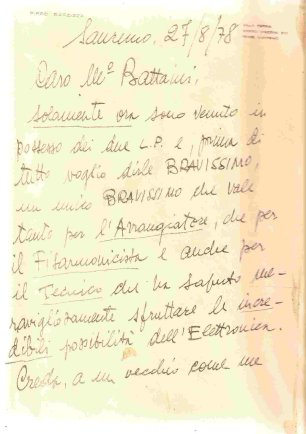 Sanremo, 27/8/78
Caro Mº Battaini,
Solamente ora sono venuto in
possesso dei due L.P. e, prima di
tutto voglio dirle BRAVISSIMO,
un unico BRAVISSIMO che vale
tanto per l'Arrangiatore, che per
il Fisarmonicista e anche per
il Tecnico che ha saputo me-
ravigliosamente sfruttare le incre-
dibili possibilità dell'Elettronica.
Creda, a un vecchio come me